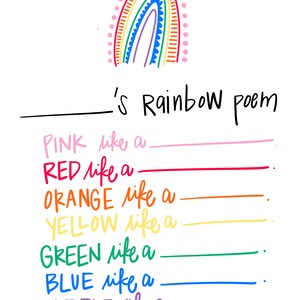 ________'s Rainbow poem
PINK like a ________.
RED like a ________.
ORANGE like a ________.
YELLOW like a ________.
GREEN like a ________.
BLUE like a ________.